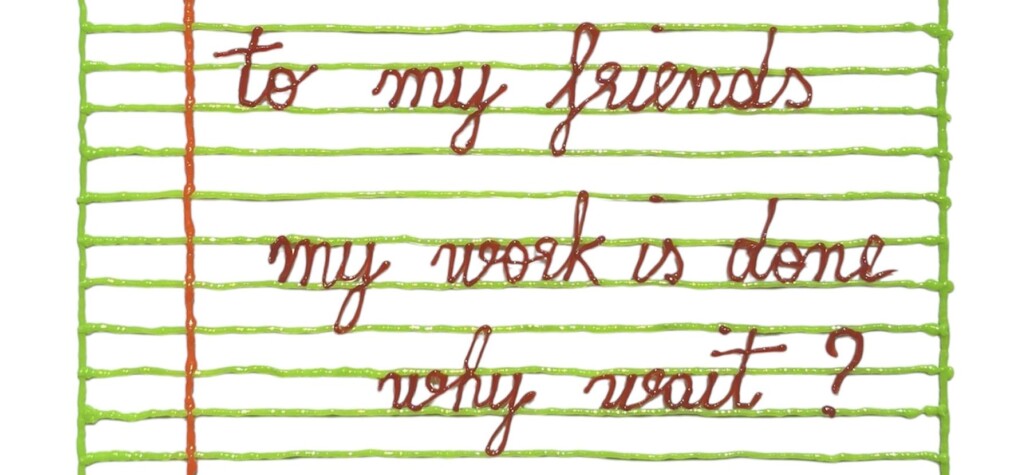 to my friends
my work is done
why wait ?